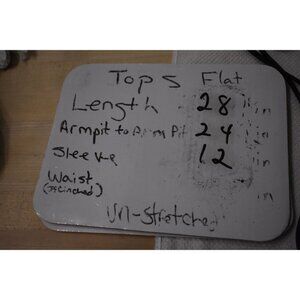 Tops Flat
Length 28 in
Armpit to Arm Pit 24 in
Sleeve 12 in
Waist in
(if cinched)
Un-Stretched